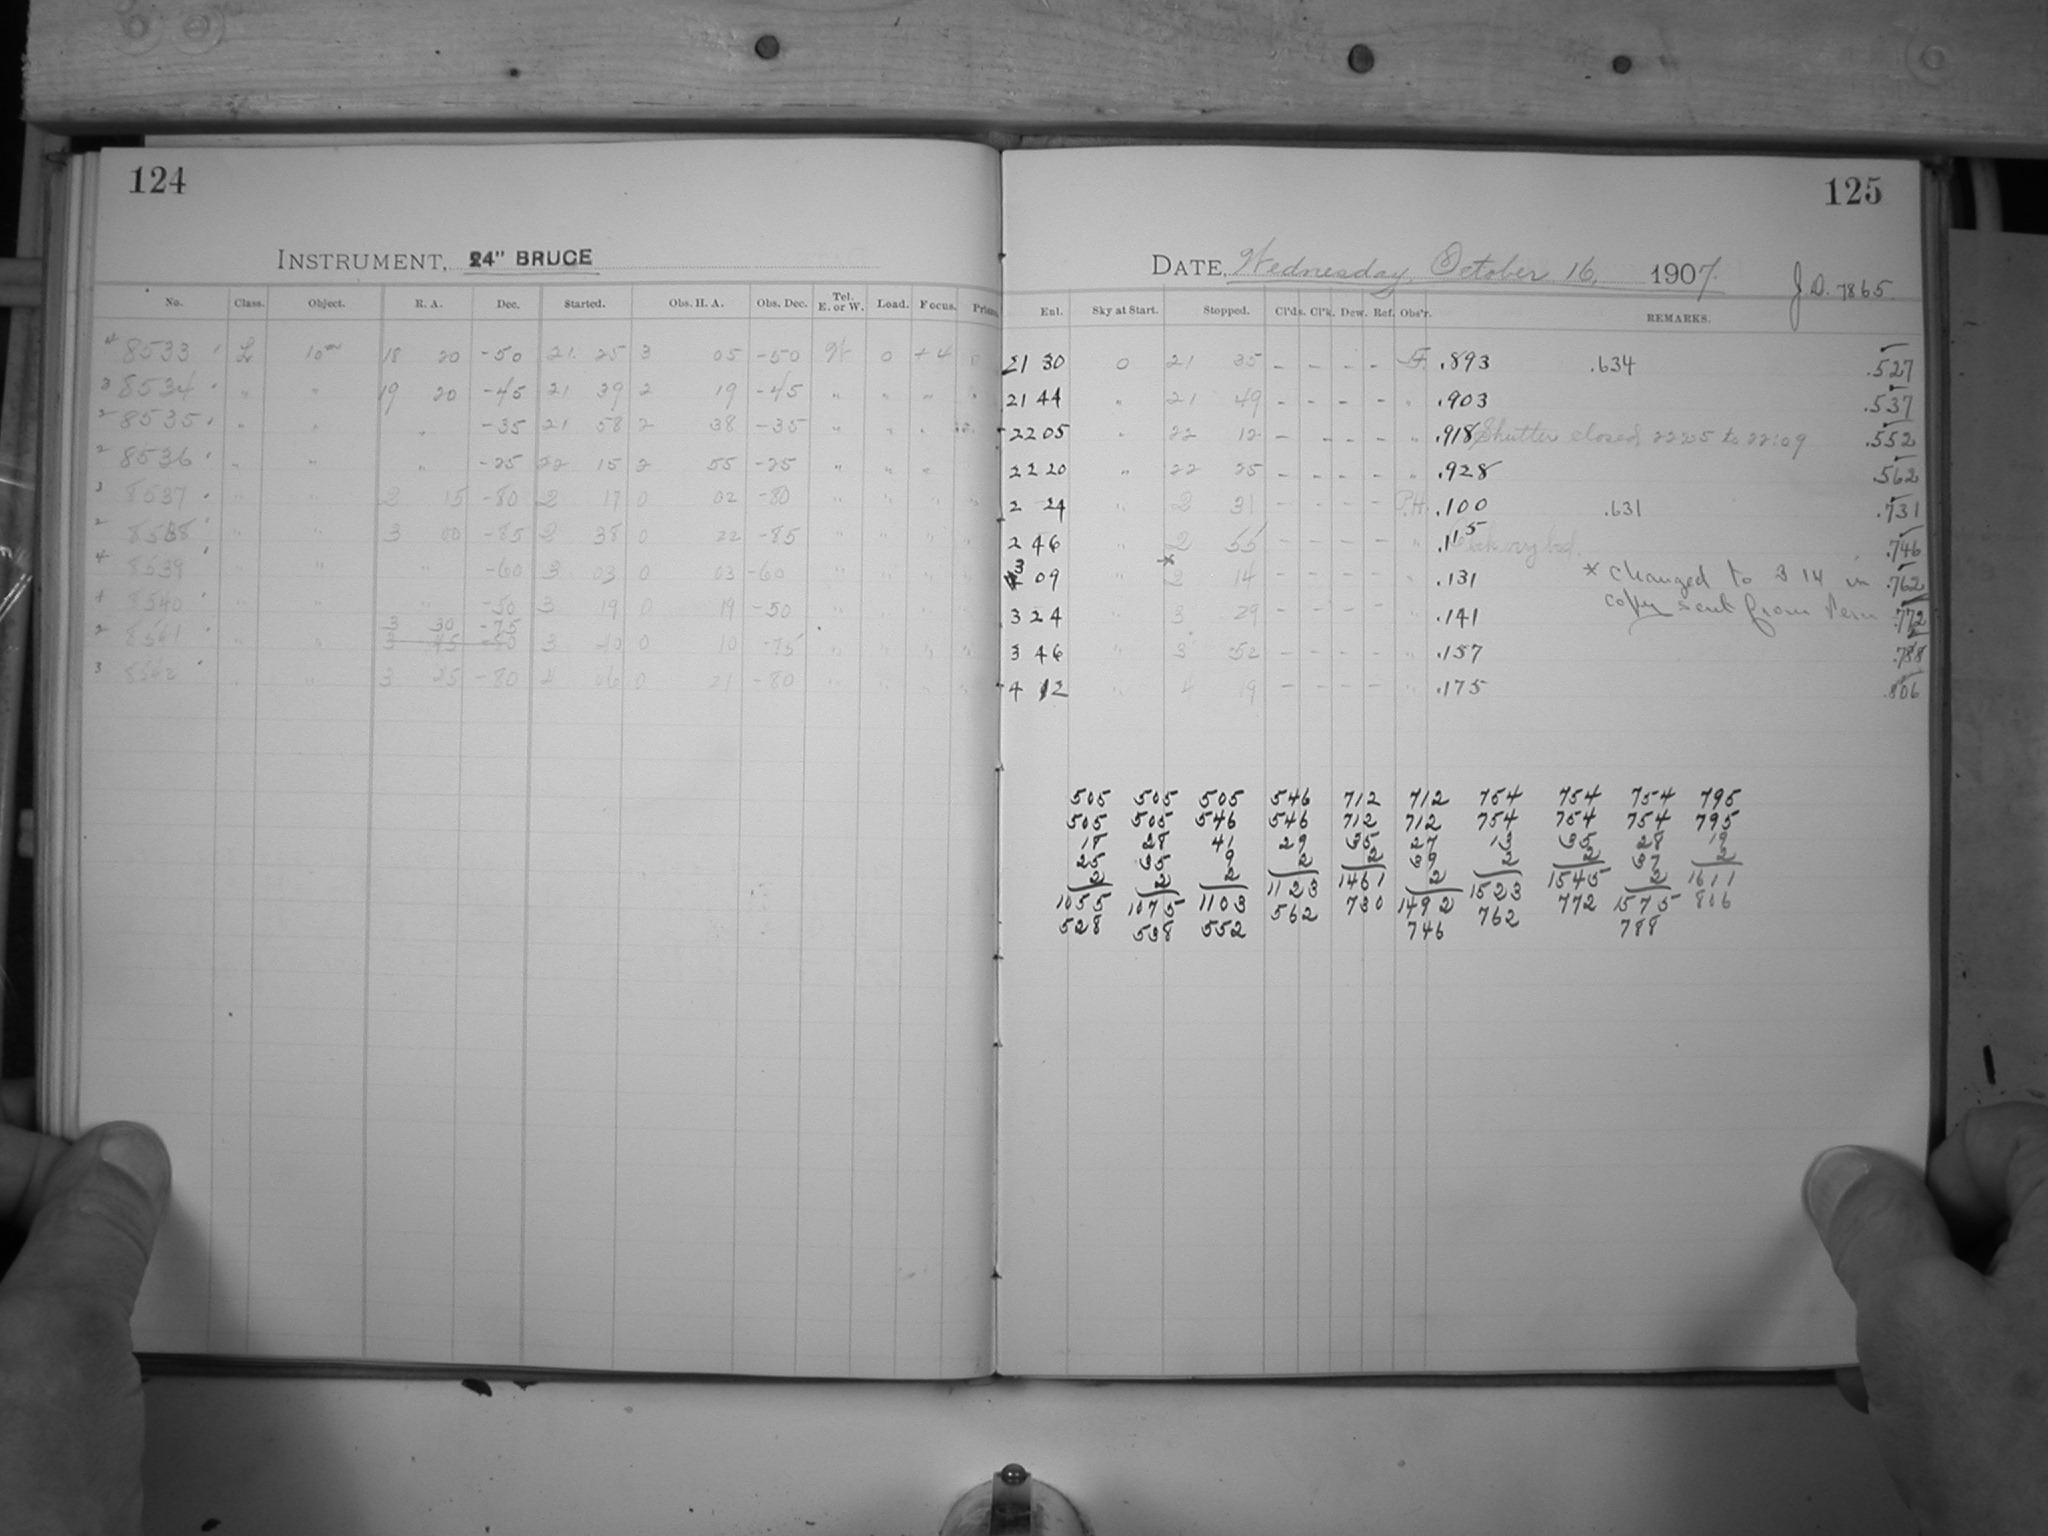 124
INSTRUMENT, 24" BRUCE
No. Class. Object. R. A. Dec. Started. Obs. H. A. Obs. Dec. Tel. E. or W. Load. Focus. Prism.
4 8533 L 10m 18 20 -50 21 25 3 05 -50 W 0 +4 0
3 8534 " " 19 20 -45 21 39 2 19 -45 " " " "
2 8535 " " " -35 21 58 2 38 -35 " " "
2 8536 " " " -25 22 15 2 55 -25 " " "
3 8537 " " 2 15 -80 2 17 0 02 -80 " " " "
2 8538 " " 3 00 -85 2 38 0 22 -85 " " " "
4 8539 " " " -60 3 03 0 03 -60 " " " "
4 8540 " " " -50 3 19 0 19 -50 " " " "
3 30 -75
2 8541 " " 3 45 -50 3 40 0 10 -75 " " " "
3 8542 " " 3 25 -80 4 06 0 21 -80 " " " "
125
DATE, Wednesday, October 16, 1907. J.D. 7865
Enl. Sky at Start. Stopped. Cl'ds. Cl'k. Dew. Ref. Obs'r. REMARKS.
21 30 0 21 35 - - - - F. .893 .634 .527
21 44 " 21 49 - - - - " .903 .537
22 05 " 22 12 - - - - " .918 Shutter closed 22:05 to 22:09 .552
22 20 " 22 25 - - - - " .928 .562
2 24 " 2 31 - - - - P.H. .100 .631 .731
2 46 " 2 55 - - - - " .115 .746
3 09 " * 2 14 - - - - " .131 * changed to 3 14 in .762
copy sent from Peru
3 24 " 3 29 - - - - " .141 .772
3 46 " 3 52 - - - - " .157 .788
4 12 " 4 19 - - - - " .175 .806
505 505 505 546 712 712 754 754 754 795
505 505 546 546 712 712 754 754 754 795
18 28 41 29 35 27 13 35 28 19
25 35 9 2 2 39 2 2 37 2
2 2 2 1123 1461 2 1523 1545 2 1611
1055 1075 1103 562 730 1492 762 772 1575 806
528 538 552 746 788